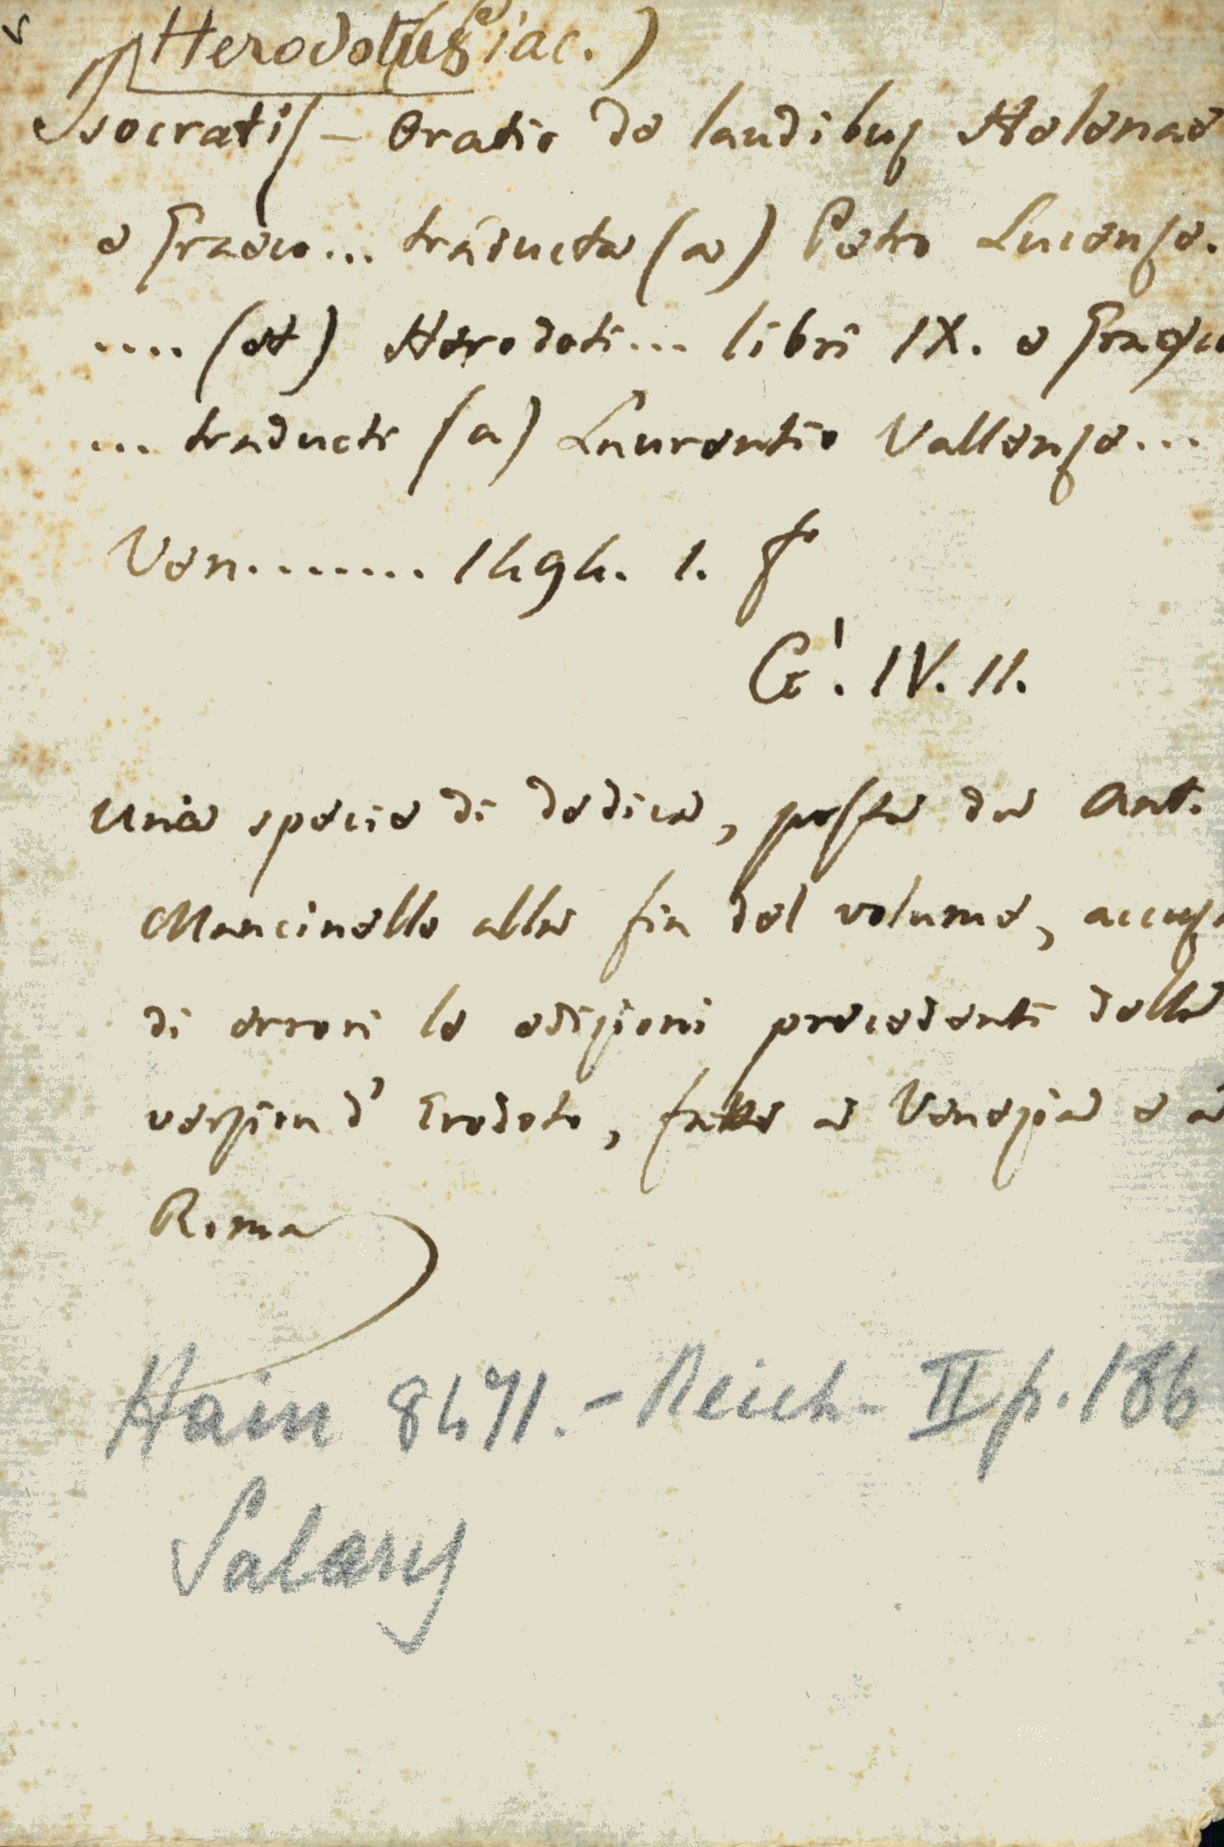 Herodotus
Isocratis – Oratio de laudibus Helenae
e Graeco... traducta (a) Petro Lucense.
.... (et) Herodoti... libri IX. e Graeco
... traducti (a) Laurentio Vallense...
Ven........ 1494. 1. fo
G'. IV. 11.
Una specie di dedica, posta da Ant.
Mancinello alla fin del volume, accusa
di errori le edizioni precedenti della
version d' Erodoto, fatte a Venezia e a
Roma
Hain 8471. – Reich– II p. 186